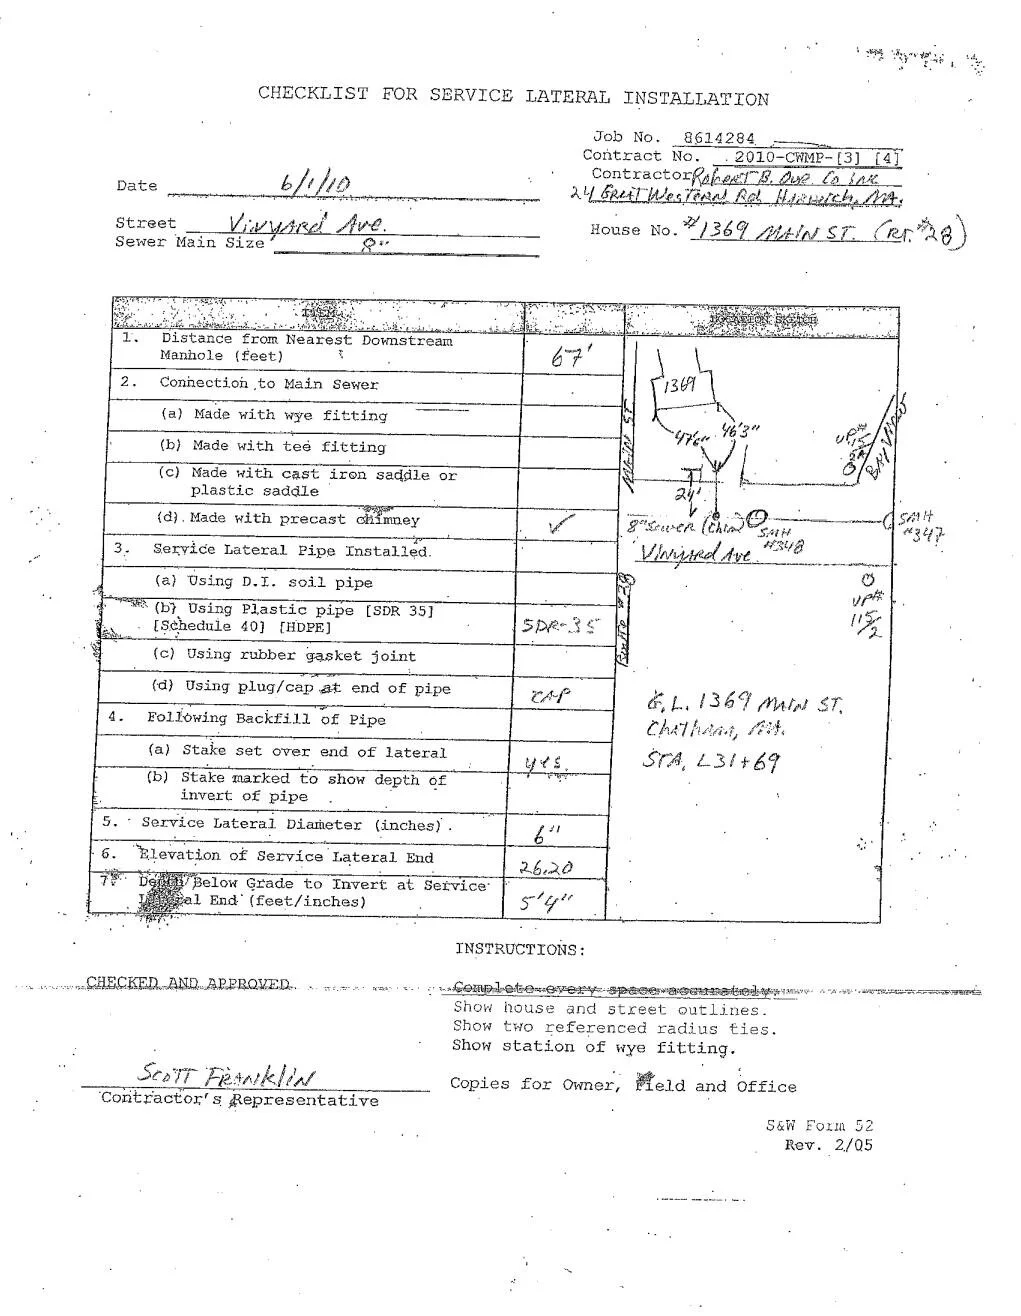 CHECKLIST FOR SERVICE LATERAL INSTALLATION
Job No. 8614284
Contract No. 2010-CWMP-[3] [4]
Contractor Robert B. Our Co Inc
24 Great Western Rd Harwich, MA.
Date 6/1/10
Street Vinyard Ave.
Sewer Main Size 8"
House No. #1369 MAIN ST. (RT. #28)
ITEM
LOCATION SKETCH
1. Distance from Nearest Downstream
Manhole (feet) 67'
2. Connection to Main Sewer
(a) Made with wye fitting
(b) Made with tee fitting
(c) Made with cast iron saddle or
plastic saddle
(d) Made with precast chimney ✓
3. Service Lateral Pipe Installed.
(a) Using D.I. soil pipe
(b) Using Plastic pipe [SDR 35]
[Schedule 40] [HDPE] SDR-35
(c) Using rubber gasket joint
(d) Using plug/cap at end of pipe CAP
4. Following Backfill of Pipe
(a) Stake set over end of lateral yes.
(b) Stake marked to show depth of
invert of pipe
5. Service Lateral Diameter (inches). 6"
6. Elevation of Service Lateral End 26.20
7. Depth Below Grade to Invert at Service
Lateral End (feet/inches) 5'4"
MAIN ST
1369
47'6" 46'3"
24'
UP#
8" Sewer (Chim)
SMH
#348
SMH
#347
Vinyard Ave
Route #28
UP#
115/2
G.L. 1369 MAIN ST.
Chatham, MA.
STA. L31+69
INSTRUCTIONS:
CHECKED AND APPROVED
Complete every space accurately.
Show house and street outlines.
Show two referenced radius ties.
Show station of wye fitting.
Scott Franklin
Contractor's Representative
Copies for Owner, Field and Office
S&W Form 52
Rev. 2/05